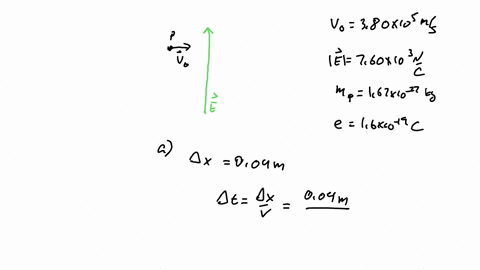 P
V⃗₀
E⃗
V₀ = 3.80x10⁵ m/s
|E⃗| = 7.60x10³ N/C
mₚ = 1.67x10⁻²⁷ kg
e = 1.6x10⁻¹⁹ C
a) Δx = 0.04m
Δt = Δx/V = 0.04m